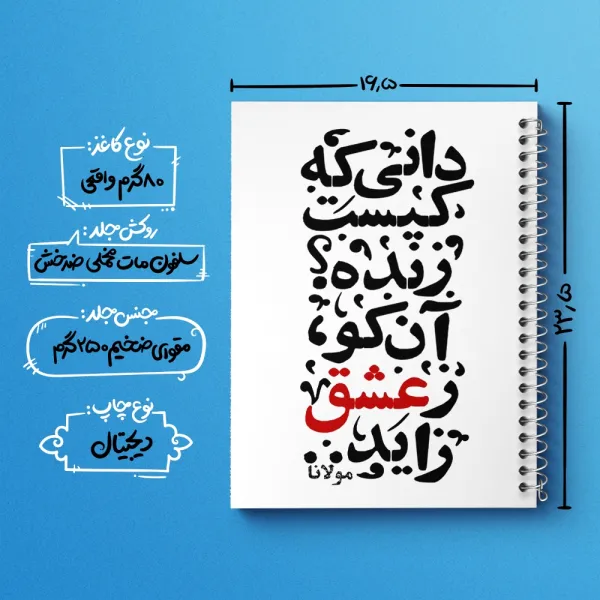 ۱۶٫۵
دانی که
کیست
زنده؟
آن کو،
ز عشق
زاید..
مولانا
۲۳٫۵
نوع کاغذ:
۸۰ گرم واقعی
روکش جلد:
سلفون مات مخملی ضدخش
جنس جلد:
مقوای ضخیم ۲۵۰ گرم
نوع چاپ:
دیجیتال